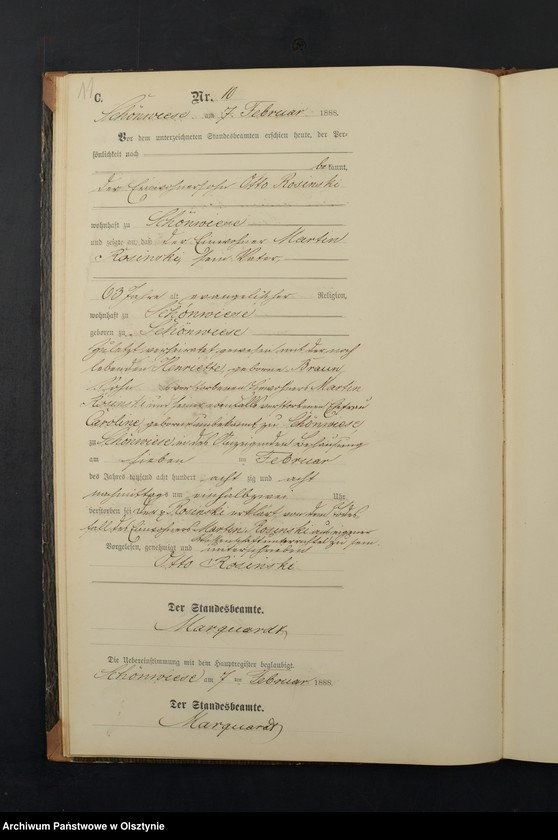 11
C.
Nr. 10
Schönwiese am 7 Februar 1888.
Vor dem unterzeichneten Standesbeamten erschien heute, der Per-
sönlichkeit nach
bekannt,
der Einwohnersohn Otto Rosinski
wohnhaft zu Schönwiese
und zeigte an, daß der Einwohner Martin
Rosinski, sein Vater
63 Jahre alt, evangelischer Religion,
wohnhaft zu Schönwiese
geboren zu Schönwiese
zuletzt verheirathet gewesen mit der noch
lebenden Henriette geborne Braun
Sohn verstorbenen Einwohners Martin
Rosinski und seiner ebenfalls verstorbenen Ehefrau
Caroline, geborne unbekannt zu Schönwiese
zu Schönwiese, in des Anzeigenden Behausung
am sieben ten Februar
des Jahres tausend acht hundert acht zig und acht
nachmittags um einhalbzwei Uhr
verstorben sei. Der p. Rosinski erklärt von dem Todes
fall des Einwohners Martin Rosinski aus eigner
Wissenschaft unterrichtet zu sein
Vorgelesen, genehmigt und unterschrieben
Otto Rosinski
Der Standesbeamte.
Marquardt
Die Uebereinstimmung mit dem Hauptregister beglaubigt.
Schönwiese am 7 ten Februar 1888.
Der Standesbeamte.
Marquardt
Archiwum Państwowe w Olsztynie